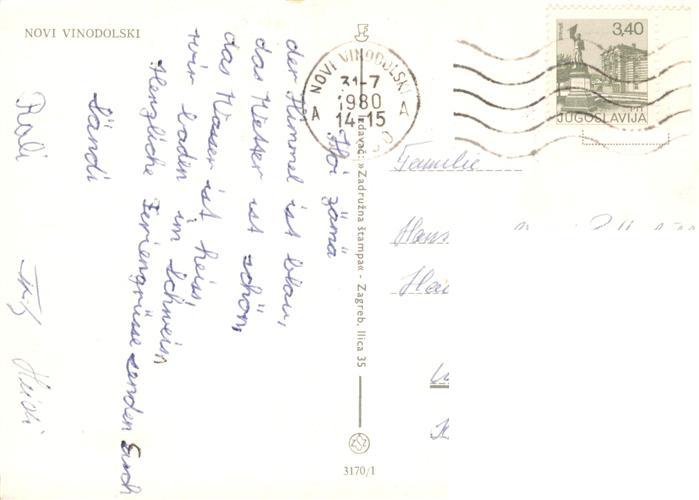 NOVI VINODOLSKI
Hoi zämä
der Himmel ist blau,
das Wetter ist schön,
das Wasser ist heiss,
wir baden im Schweiss,
Herzliche Feriengrüsse senden Euch
Sändi
Ruli Fritz Heidi
Izdavač: »Zadružna štampa« - Zagreb, Ilica 35
3170/1
NOVI VINODOLSKI
31-7
1980
14-15
A A
3,40
JUGOSLAVIJA
Familie
Hans